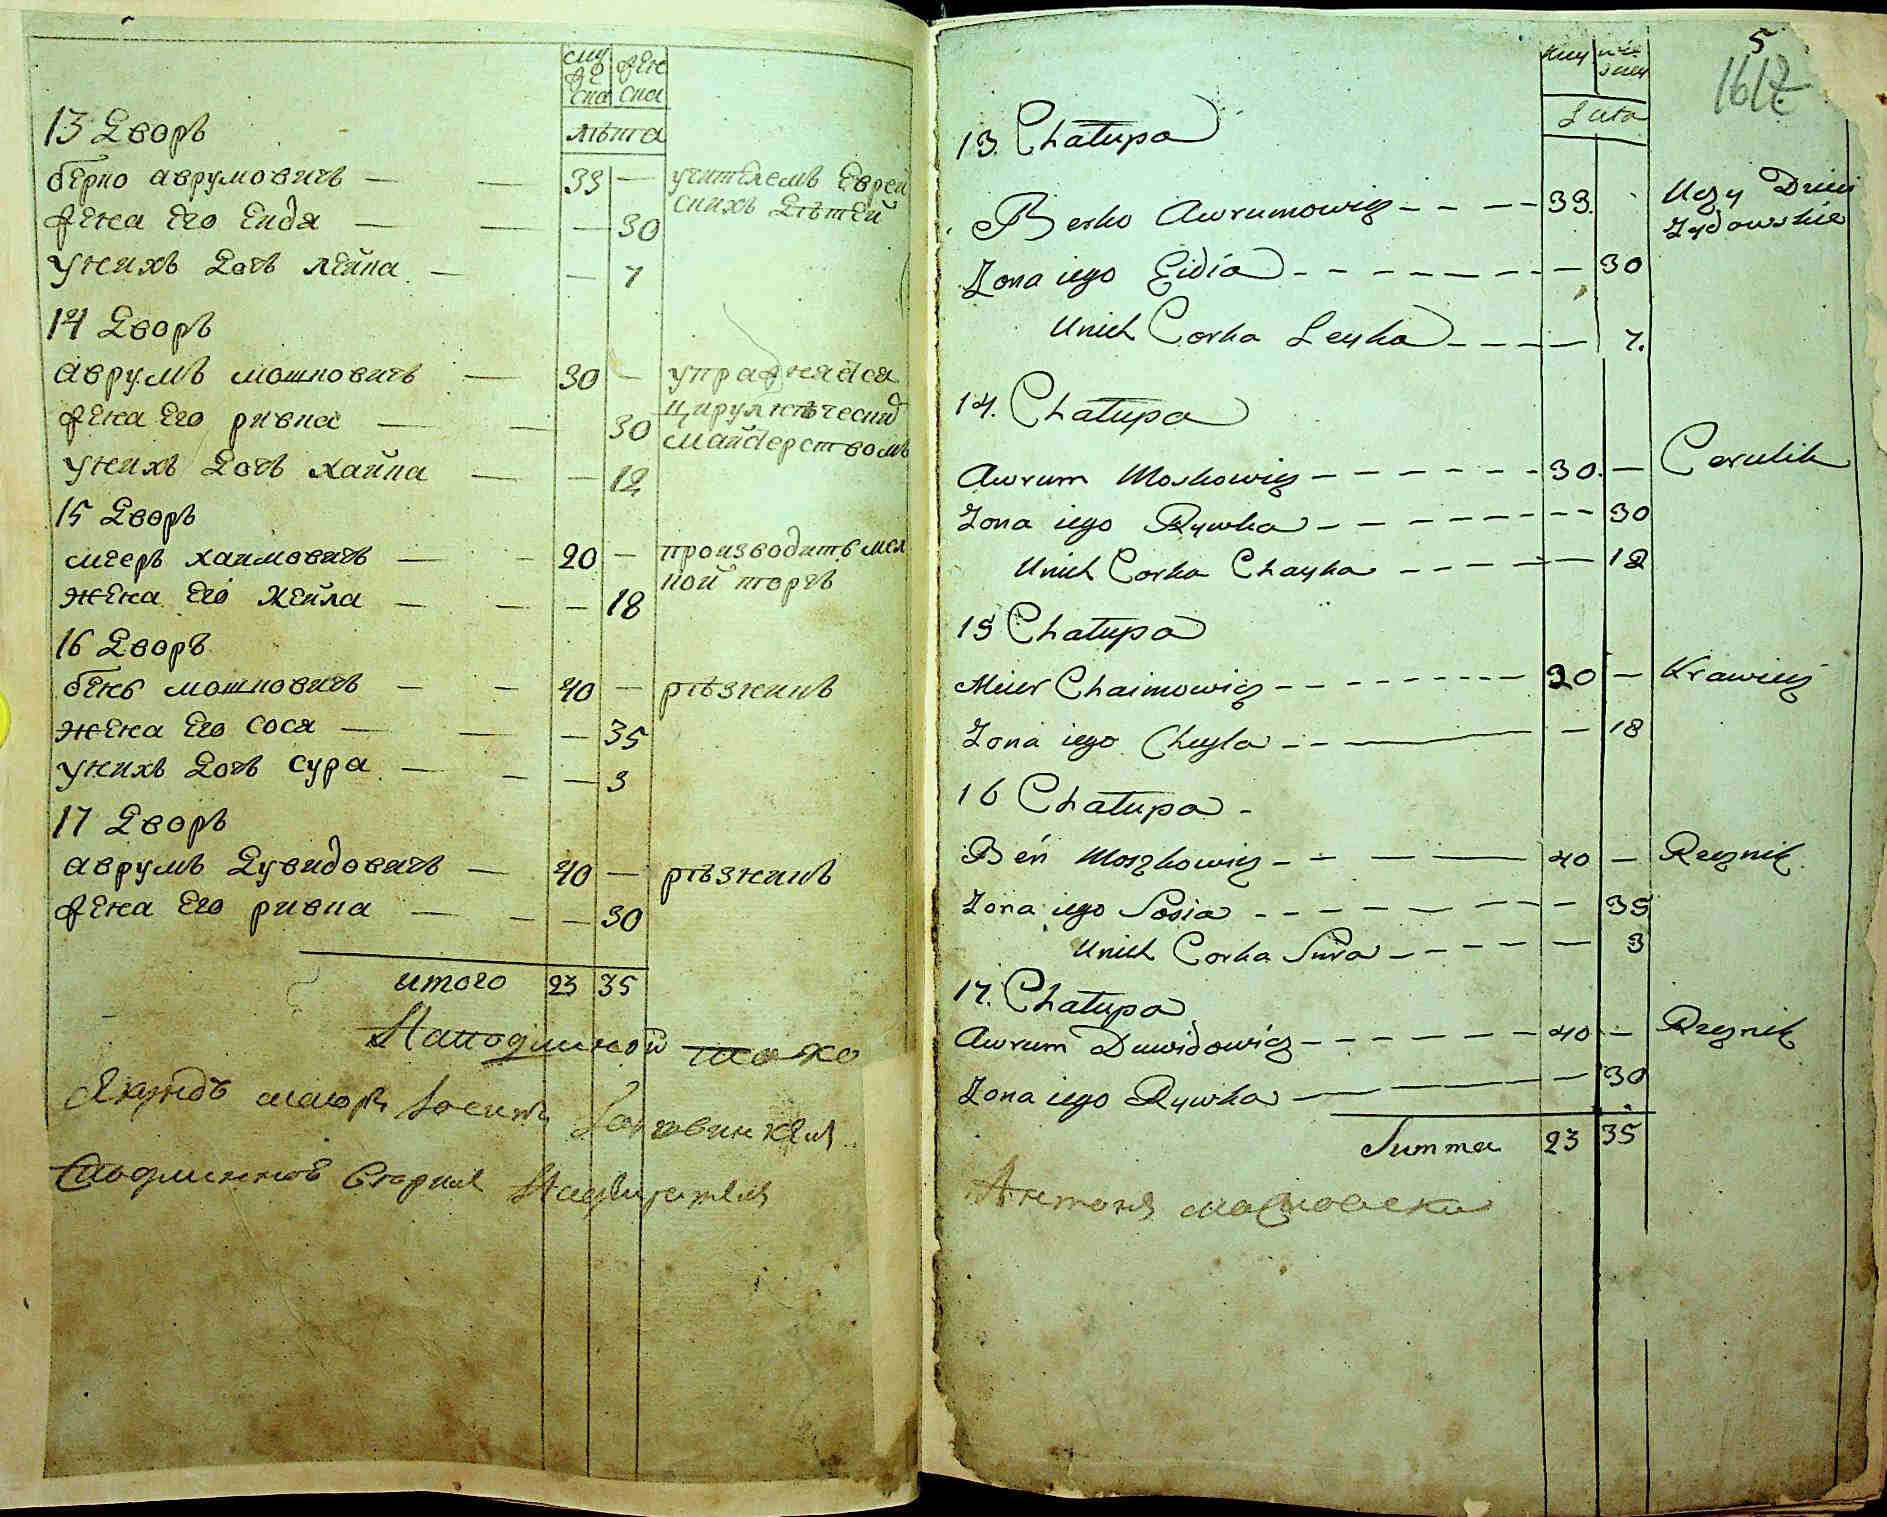 муже ска женска
лѣта
13 Дворъ
берко аврумовичъ — — 33 — учителемъ Еврей
скихъ Дѣтей
жена Его Еидя — — — 30
унихъ Дочь лейка — — 7
14 Дворъ
аврумъ мошковичъ — 30 — упражняется
цирулническим
жена Его ривка — — 30 майстерствомъ
унихъ Дочь хайка — — 12
15 Дворъ
мееръ хаимовичъ — — 20 — производитъ мел
кой торгъ
жена Его хейла — — — 18
16 Дворъ
бень мошковичъ — — 40 — рѣзникъ
жена Его сося — — — 35
унихъ Дочь сура — — — 3
17 Дворъ
аврумъ Дувидовичъ — 40 — рѣзникъ
жена Его ривка — — — 30
итого 23 35
Наподлинной
маіоръ
Сподлиннов
5
1617
Lata
13. Chałupa
Berko Awrumowicz - - - 33. Uczy Dzieci
Żydowskie
Zona iego Eidia - - - - - - - 30
Unich Corka Leyka - - - - 7.
14. Chałupa
Awrum Moskowicz - - - - - - 30. — Cerulik
Zona iego Rywka - - - - - - - 30
Unich Corka Chayka - - - - - 12
15 Chałupa
Meier Chaimowicz - - - - - - 20 — Krawiec
Zona iego Cheyla - - — — 18
16 Chałupa -
Beń Moszkowicz - - — — 40 — Rzeznik
Zona iego Sosia - - - - - - - 35
Unich Corka Sura - - - - — 3
17. Chałupa
Awrum Duwidowicz - - - - - - 40 — Rzeznik
Zona iego Rywka — — — - 30
Summa 23 35
Антонъ